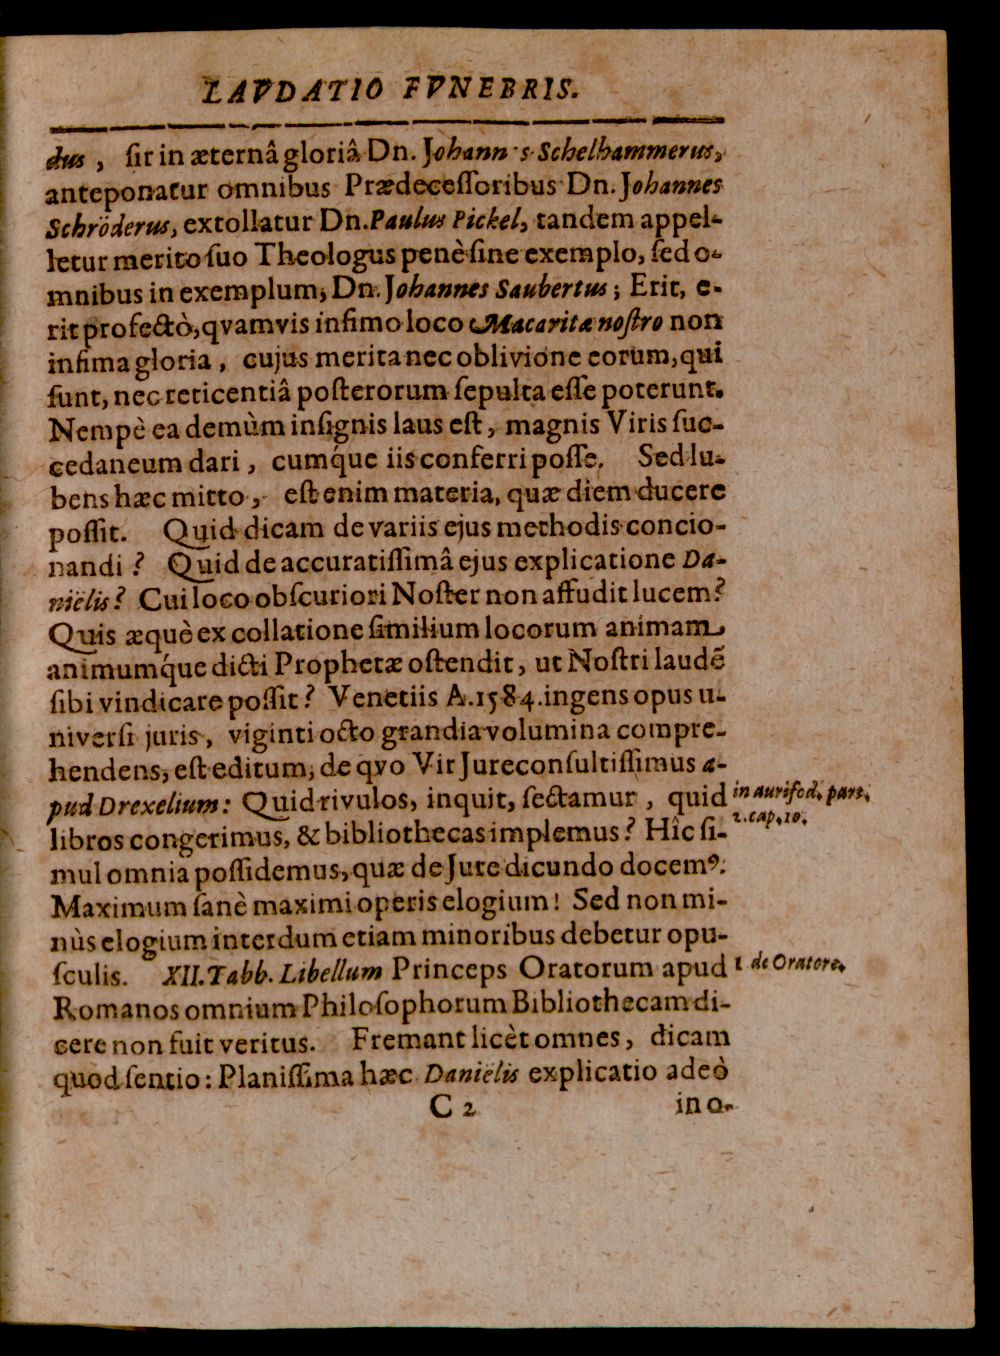 LAVDATIO FVNEBRIS.
dus, ſit in æternâ gloriâ Dn. Johann s Schelhammerus,
anteponatur omnibus Prædeceſſoribus Dn. Johannes
Schröderus, extollatur Dn. Paulus Pickel, tandem appel-
letur merito ſuo Theologus penè ſine exemplo, ſed o-
mnibus in exemplum, Dn. Johannes Saubertus; Erit, e-
rit profectò, qvamvis infimo loco Macaritæ noſtro non
infima gloria, cujus merita nec oblivione eorum, qui
ſunt, nec reticentiâ poſterorum ſepulta eſſe poterunt.
Nempè ea demùm inſignis laus eſt, magnis Viris ſuc-
cedaneum dari, cumq́ue iis conferri poſſe. Sed lu-
bens hæc mitto, eſt enim materia, quæ diem ducere
poſſit. Quid dicam de variis ejus methodis concio-
nandi? Quid de accuratiſſimâ ejus explicatione Da-
niëlis? Cui loco obſcuriori Noſter non affudit lucem?
Quis æquè ex collatione ſimilium locorum animam
animumq́ue dicti Prophetæ oſtendit, ut Noſtri laudẽ
ſibi vindicare poſſit? Venetiis A. 1584. ingens opus u-
niverſi juris, viginti octo grandia volumina compre-
hendens, eſt editum, de qvo Vir Jureconſultiſſimus a-
pud Drexelium: Quid rivulos, inquit, ſectamur, quid
in aurifod. part.
libros congerimus, & bibliothecas implemus? Hîc ſi-
1. cap. 10.
mul omnia poſſidemus, quæ de Jure dicundo docemꝰ.
Maximum ſanè maximi operis elogium! Sed non mi-
nùs elogium interdum etiam minoribus debetur opu-
ſculis. XII. Tabb. Libellum Princeps Oratorum apud
1 de Oratore.
Romanos omnium Philoſophorum Bibliothecam di-
cere non fuit veritus. Fremant licèt omnes, dicam
quod ſentio: Planiſſima hæc Daniëlis explicatio adeò
C 2 in o-